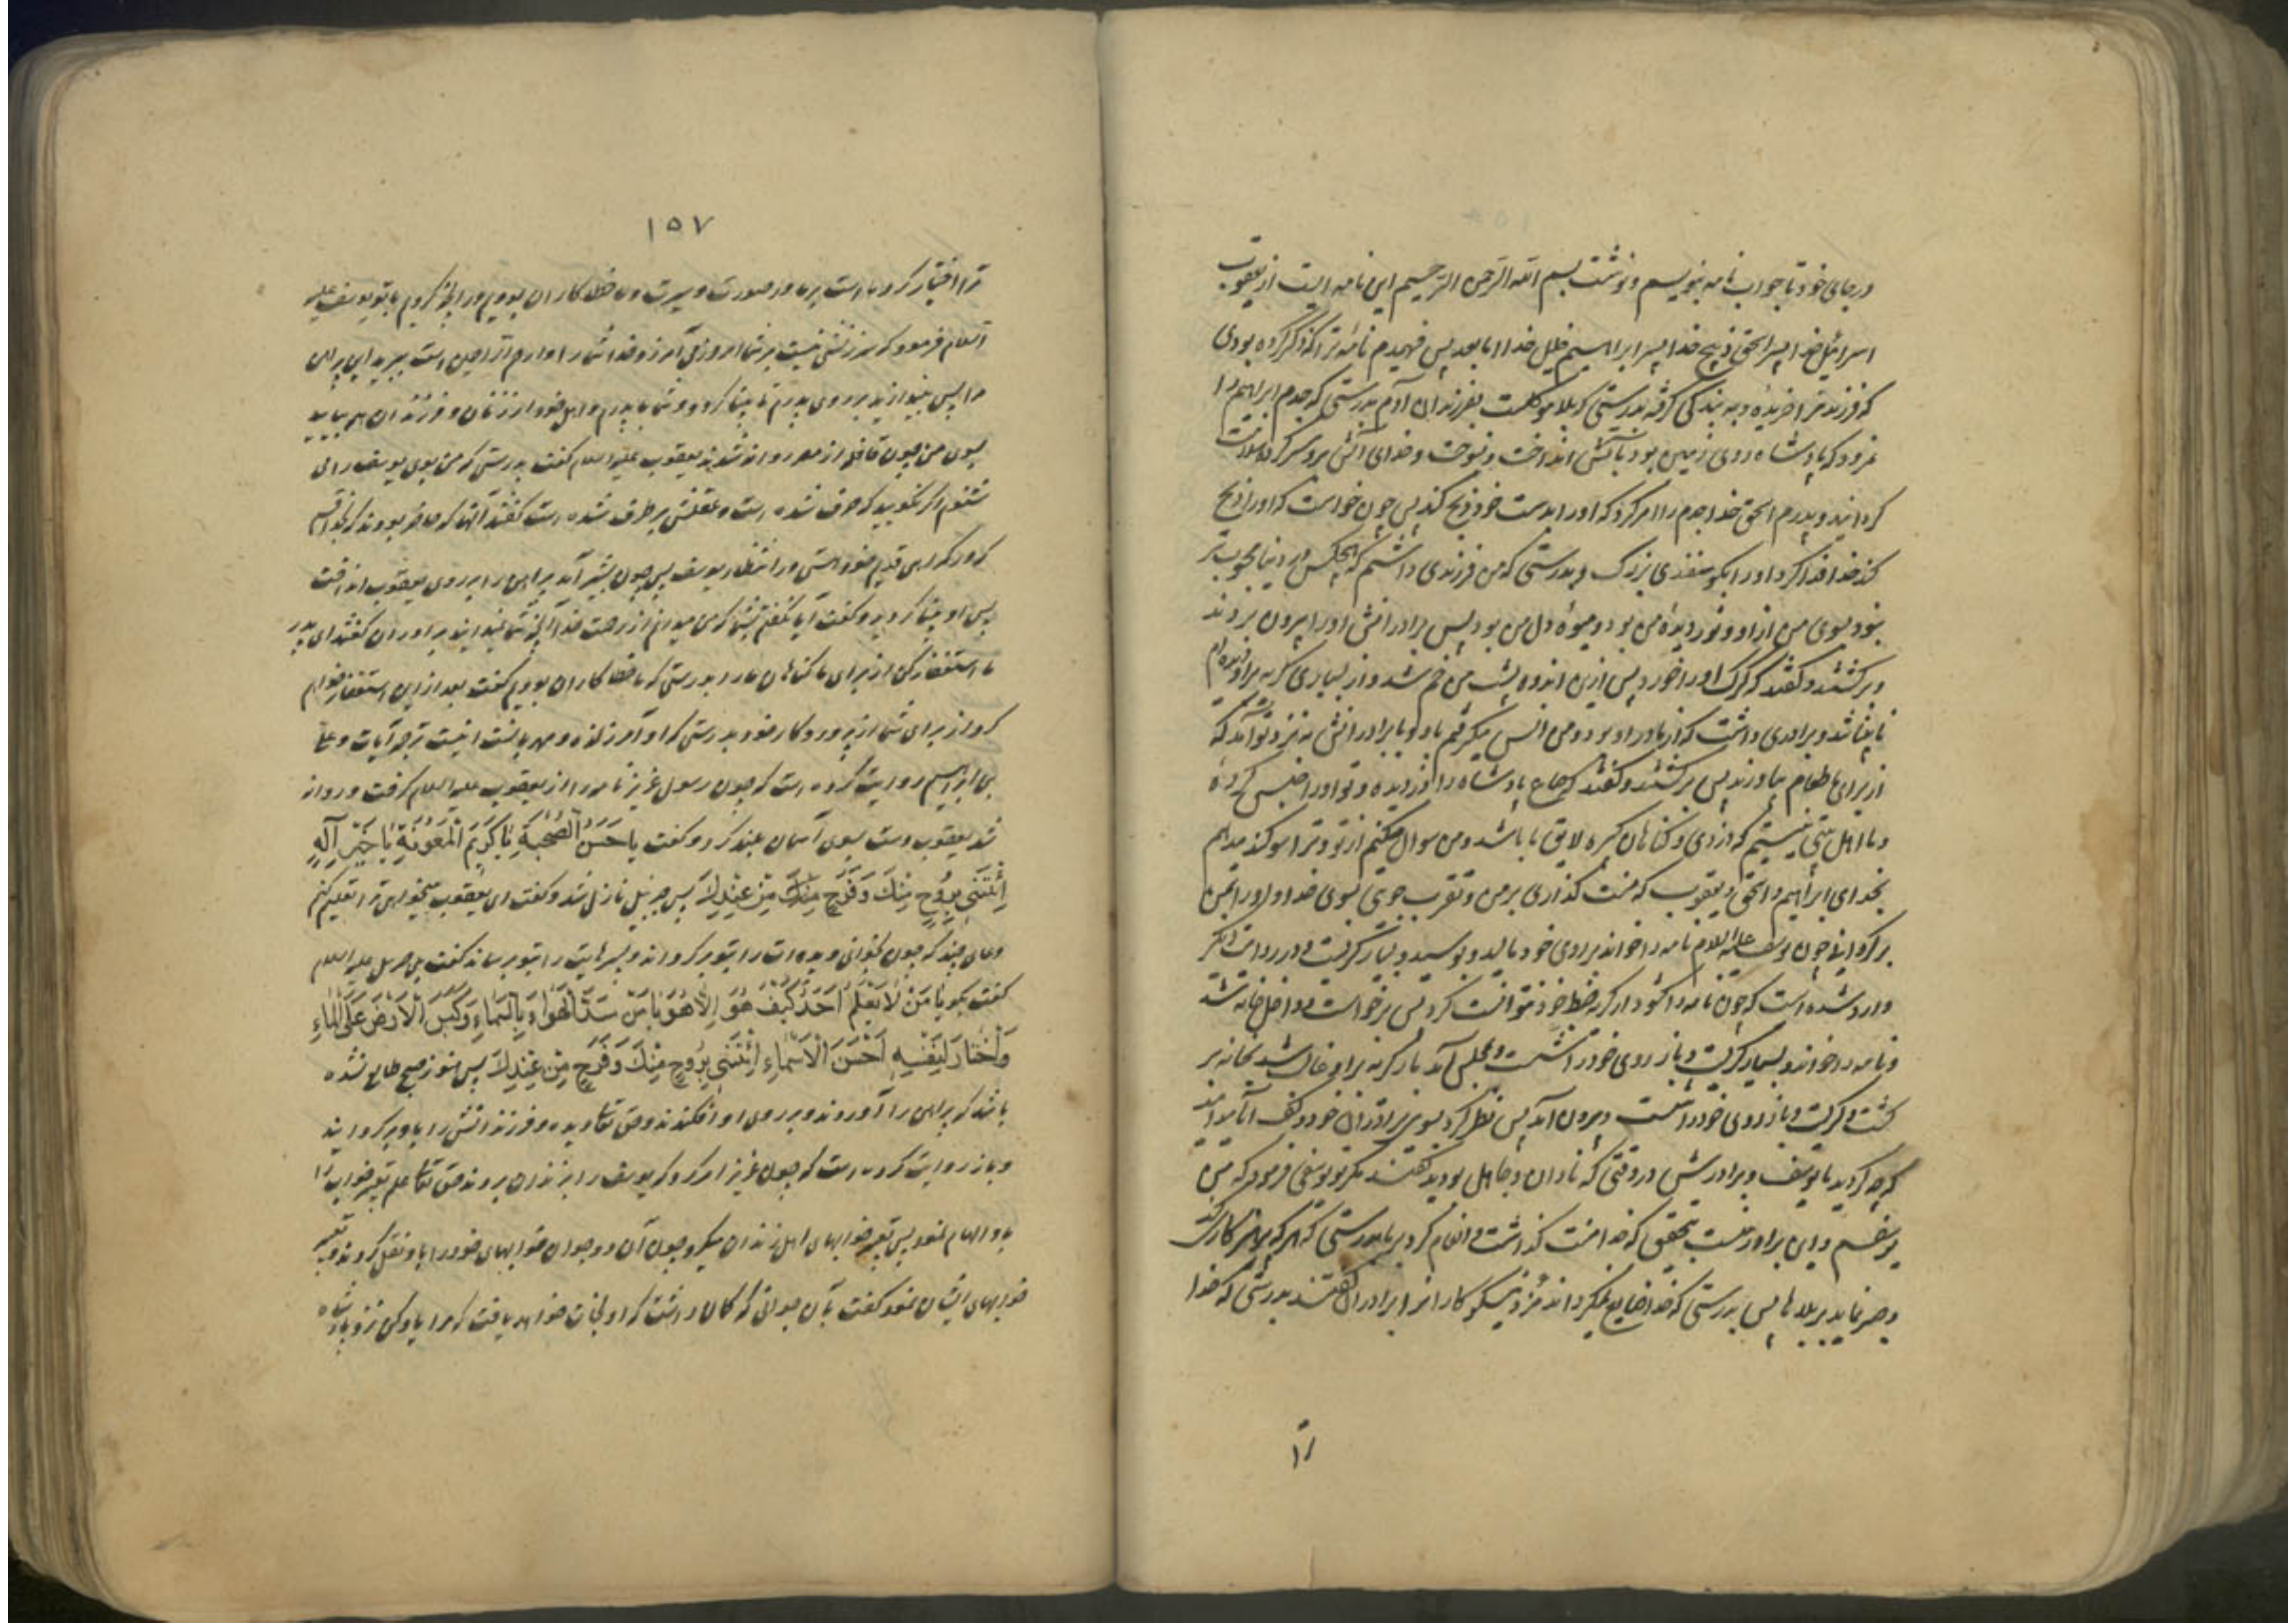 در جای خود تا جواب نامه بنویسم و نوشت بسم الله الرحمن الرحیم این نامه ایست از یعقوب
اسرائیل خدا پسر اسحق ذبیح خدا پسر ابراهیم خلیل خدا اما بعد پس فهمیدم نامه ترا که ذکر کرده بودی
که فرزند مرا خریده و به بندگی گرفته بدرستی که بلا موکلست بفرزندان آدم بدرستی که جدم ابراهیم را
نمرود که پادشاه روی زمین بود بآتش انداخت و نسوخت و خدای آتش برو سرد و سلامت
گردانید و پدرم اسحق خدا جدم را امر کرد که او را بدست خود ذبح کند پس چون خواست که او را ذبح
کند خدا فدا کرد او را بگوسفندی بزرگ و بدرستی که من فرزندی داشتم که هیچکس در دنیا محبوب تر
نبود بسوی من از او و نور دیده من بود و میوه دل من بود پس برادرانش او را بیرون بردند
و برگشتند و گفتند که گرگ او را خورد پس ازین اندوه پشت من خم شد و از بسیاری گریه بر او دیده‌ام
نابینا شد و برادری داشت که از مادر او بود و من انس میگرفتم باو و با برادرانش به نزد تو آمد که
از برای ما طعام بیاورند پس برگشتند و گفتند که صاع پادشاه را دزدیده و تو او را حبس کرده
و ما اهل بیتی نیستیم که دزدی و گناهان کبیره لایق ما باشد و من سوال میکنم از تو و ترا سوگند میدهم
بخدای ابراهیم و اسحق و یعقوب که منت گذاری بر من و تقرب جویی بسوی خدا و او را بمن
برگردانی چون یوسف علیه السلام نامه را خواند بر روی خود مالید و بوسید و بسیار گریست و در روایت دیگر
وارد شده است که چون نامه را گشود از گریه ضبط خود نتوانست کرد پس برخواست و داخل خانه شد
و نامه را خواند و بسیار گریست و باز روی خود را شست و بمجلس آمد باز گریه بر او غالب شد بخانه بر
گشت و گریست و باز روی خود را شست و بیرون آمد پس نظر کرد بسوی برادران خود و گفت آیا میدانید
که چه کردید با یوسف و برادرش در وقتی که نادان و جاهل بودید گفتند مگر تو یوسفی فرمود که من
یوسفم و این برادر منست بتحقیق که خدا منت گذاشت و انعام کرد بر ما بدرستی که هر که پرهیزکاری کند
و صبر نماید بر بلاها پس بدرستی که خدا ضایع نمیگرداند مزد نیکوکاران را برادران گفتند بدرستی که خدا
ترا
۱۵۷
ترا اختیار کرده است بر ما در صورت و سیرت و ما خطاکاران بودیم در آنچه کردیم با تو یوسف علیه
السلام فرمود که سرزنشی نیست بر شما امروز می آمرزد خدا شما را و ارحم الراحمین است ببرید این پیراهن
مرا پس بیندازید بر روی پدرم تا بینا گردد و شما با پدرم و اهل خود از زنان و فرزندان همه بیایید
بسوی من چون قافله از مصر روانه شدند یعقوب علیه السلام گفت بدرستی که من بوی یوسف را می
شنوم اگر نگویید که خرف شده است و عقلش برطرف شده است گفتند آنها که حاضر بودند که بخدا قسم
که در گمراهی قدیم خود هستی در انتظار یوسف پس چون بشیر آمد پیراهن را بر روی یعقوب انداخت
پس او بینا گردید و گفت آیا نگفتم بشما که من میدانم از رحمت خدا آنچه شما نمیدانید برادران گفتند ای پدر
ما استغفار کن از برای ما گناهان ما را بدرستی که ما خطاکاران بودیم گفت بعد ازین استغفار خواهم
کرد از برای شما از پروردگار خود بدرستی که او آمرزنده و مهربانست اینست ترجمه آیات و علی
بن ابراهیم روایت کرده است که چون رسول عزیز نامه را از یعقوب علیه السلام گرفت و روانه
شد یعقوب دست بسوی آسمان بلند کرد و گفت یا حَسَنَ الصُّحْبَةِ یا کَرِیمَ الْمَعُونَةِ یا خَیْرَ اِلٰهٍ
اِئْتِنی بِرَوْحٍ مِنْكَ وَفَرَجٍ مِنْ عِنْدِكَ پس جبرئیل نازل شد و گفت ای یعقوب میخواهی ترا تعلیم کنم
دعای چند که چون بخوانی دیده‌ات را بتو برگرداند و پسرهایت را بتو برساند گفت بلی جبرئیل علیه السلام
گفت بگو یا مَنْ لا یَعْلَمُ اَحَدٌ کَیْفَ هُوَ اِلّا هُوَ یا مَنْ سَدَّ الْهَواءَ بِالسَّماءِ وَکَبَسَ الْاَرْضَ عَلَی الْماءِ
وَاخْتارَ لِنَفْسِهِ اَحْسَنَ الْاَسْماءِ اِئْتِنی بِرَوْحٍ مِنْكَ وَفَرَجٍ مِنْ عِنْدِكَ پس هنوز صبح طالع نشده
باشد که پیراهن را آوردند و بر روی او افکندند و حق تعالی دیده و فرزندانش را باو برگردانید
و باز روایت کرده است که چون عزیز امر کرد که یوسف را بزندان بردند حق تعالی علم تعبیر خواب را
باو الهام نمود پس تعبیر خوابهای اهل زندان میکرد چون آن دو جوان خوابهای خود را باو نقل کردند و تعبیر
خوابهای ایشان نمود گفت بآن جوانی که گمان داشت که او نجات خواهد یافت که مرا یاد کن نزد پادشاه